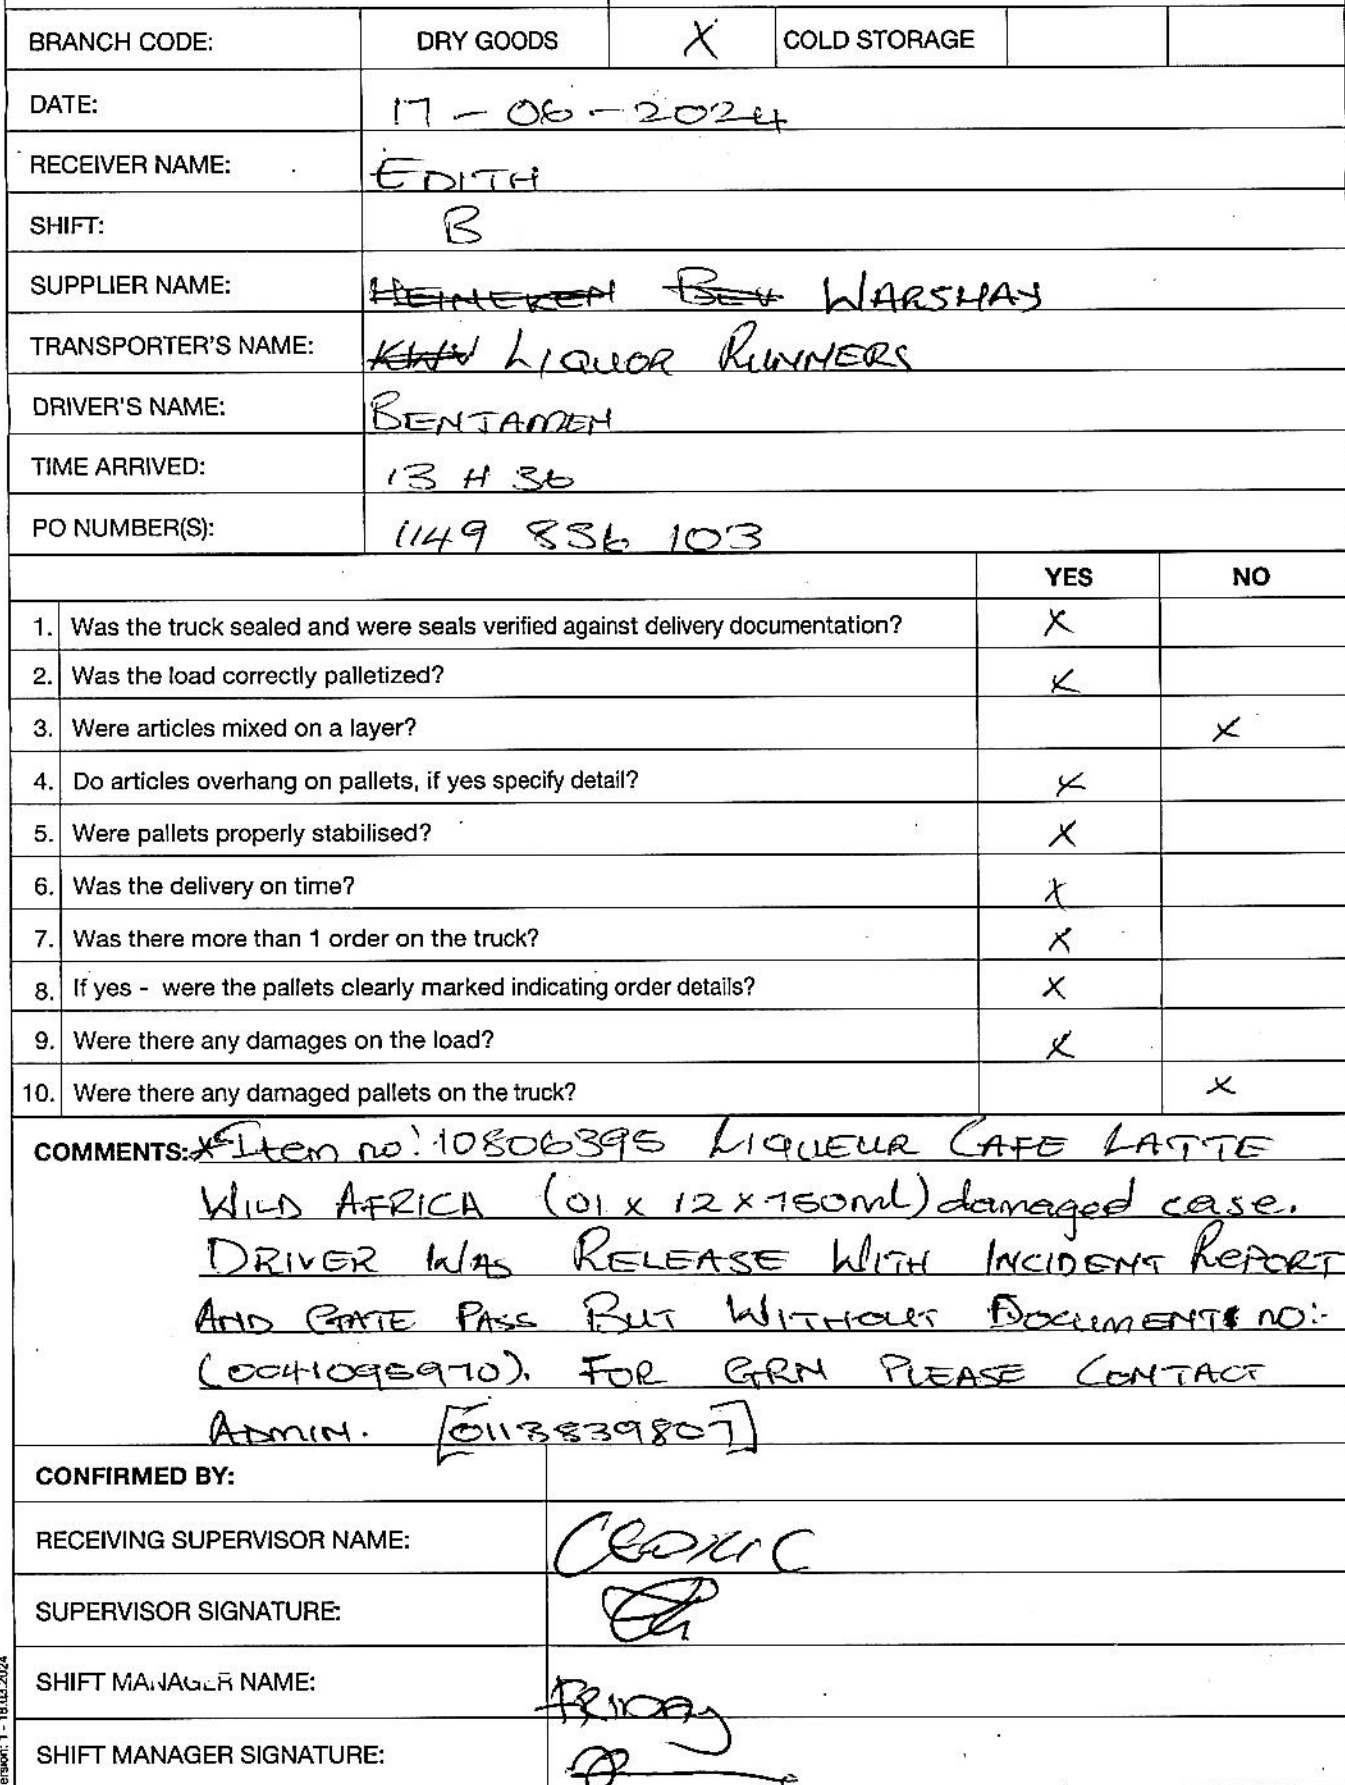 BRANCH CODE: DRY GOODS X COLD STORAGE
DATE: 17 - 06 - 2024
RECEIVER NAME: EDITH
SHIFT: B
SUPPLIER NAME: HEINEKEN BEV WARSHAY
TRANSPORTER'S NAME: KWV LIQUOR RUNNERS
DRIVER'S NAME: BENJAMEN
TIME ARRIVED: 13 H 36
PO NUMBER(S): 1149 836 103
YES NO
1. Was the truck sealed and were seals verified against delivery documentation? X
2. Was the load correctly palletized? X
3. Were articles mixed on a layer? X
4. Do articles overhang on pallets, if yes specify detail? X
5. Were pallets properly stabilised? X
6. Was the delivery on time? X
7. Was there more than 1 order on the truck? X
8. If yes - were the pallets clearly marked indicating order details? X
9. Were there any damages on the load? X
10. Were there any damaged pallets on the truck? X
COMMENTS: * Item no: 10806395 LIQUEUR CAFE LATTE
WILD AFRICA (01 x 12 x 750ml) damaged case.
DRIVER WAS RELEASE WITH INCIDENT REPORT
AND GATE PASS BUT WITHOUT DOCUMENT NO:-
(0041095970). FOR GRN PLEASE CONTACT
ADMIN. [0113839807]
CONFIRMED BY:
RECEIVING SUPERVISOR NAME:
SUPERVISOR SIGNATURE:
SHIFT MANAGER NAME: FRIDAY
SHIFT MANAGER SIGNATURE:
ersion: 1 - 18.03.2024